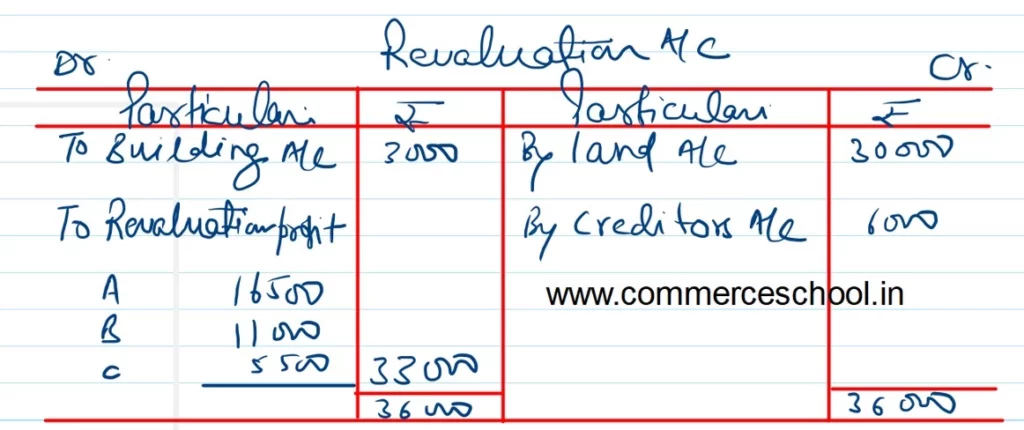 Revaluation A/C
Dr. Cr.
Particulars ₹ Particulars ₹
To Building A/c 3000 By land A/c 30000
To Revaluation profit By Creditors A/c 6000
A 16500 www.commerceschool.in
B 11000
C 5500 33000
36000 36000